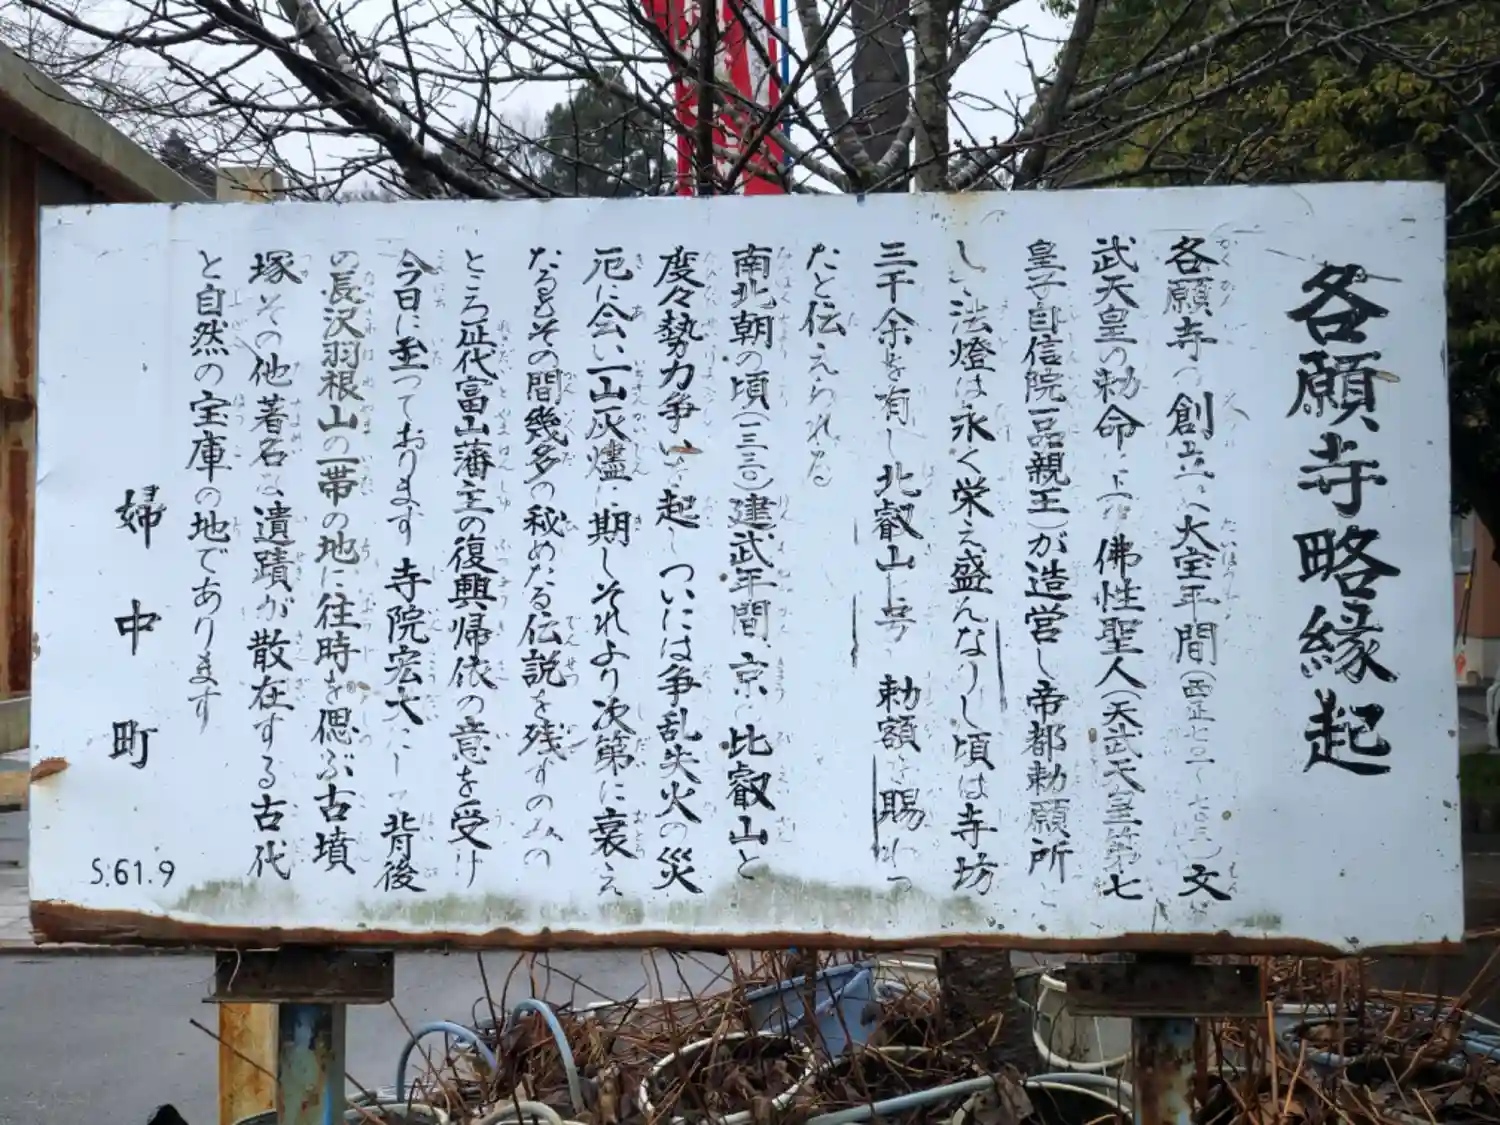 各願寺略縁起
各願寺の創立は大宝年間(西正七〇一〜七〇三)文
武天皇の勅命により佛性聖人(天武天皇第七
皇子自信院一品親王)が造営し帝都勅願所と
し 法燈は永く栄え盛んなりし頃は寺坊
三千余を有し北叡山と号し勅額を賜わっ
たと伝えられる
南北朝の頃(一三三〇)建武年間 京の比叡山と
度々勢力争いを起しついには争乱失火の災
厄に会い一山灰燼に期しそれより次第に衰え
なるもその間幾多の秘めたる伝説を残すのみの
ところ 代富山藩主の復興帰依の意を受け
今日に至っております 寺院宏大にして背後
の長沢羽根山の一帯の地に往時を偲ぶ古墳
塚その他著名な遺蹟が散在する古代
と自然の宝庫の地であります
婦中町
S.61.9